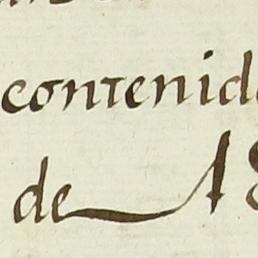 contenid
de 18